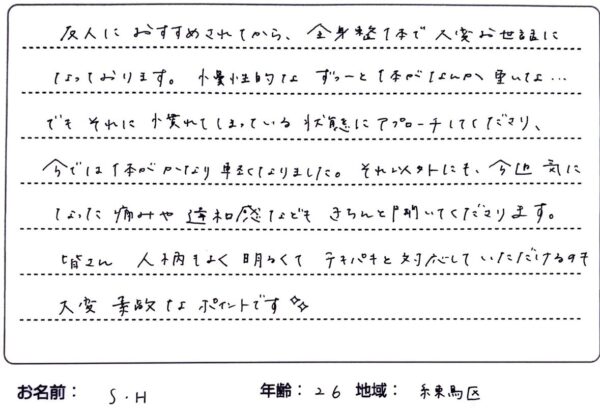 友人におすすめされてから、全身整体で大変お世話に
なっております。慢性的な ずっーと体がなんか重いな…
でも それに慣れてしまっている状態にアプローチしてくださり、
今では体がかなり軽くなりました。それ以外にも、今迄 気に
なった痛みや違和感なども きちんと聞いてくださります。
皆さん 人柄もよく明るくて テキパキと対応していただけるのも
大変素敵なポイントです✧✧
お名前： S・H 年齢：26 地域： 練馬区